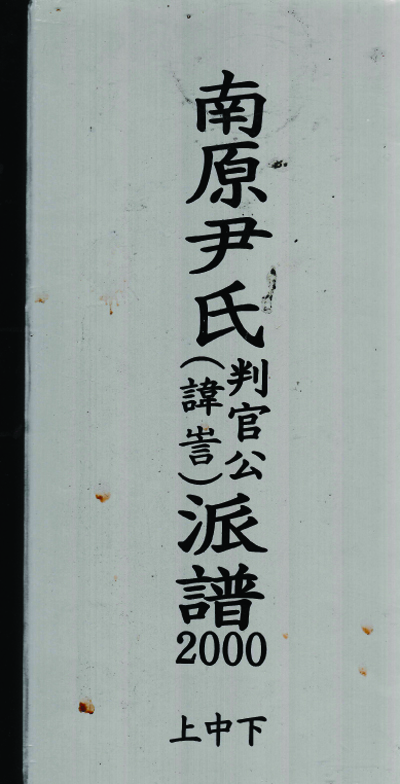 南原尹氏
判官公
(諱訔)
派譜
2000
上中下